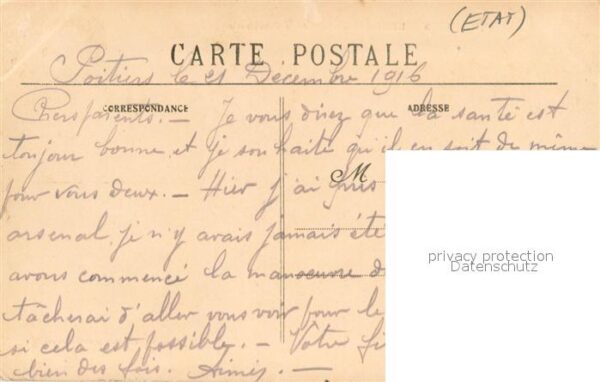 (ETAT)
CARTE POSTALE
Poitiers le 21 Decembre 1916
CORRESPONDANCE
ADRESSE
Chers parents. — Je vous direz que la santé est
toujour bonne et je souhaite qu'il en soit de même
M
pour vous deux. — Hier j'ai pris
arsenal je n'y avais jamais été
avons commencé la manoeuvre d
tâcherai d'aller vous voir pour le
si cela est possible. — Votre fi
bien des fois. Aimés. —
privacy protection
Datenschutz